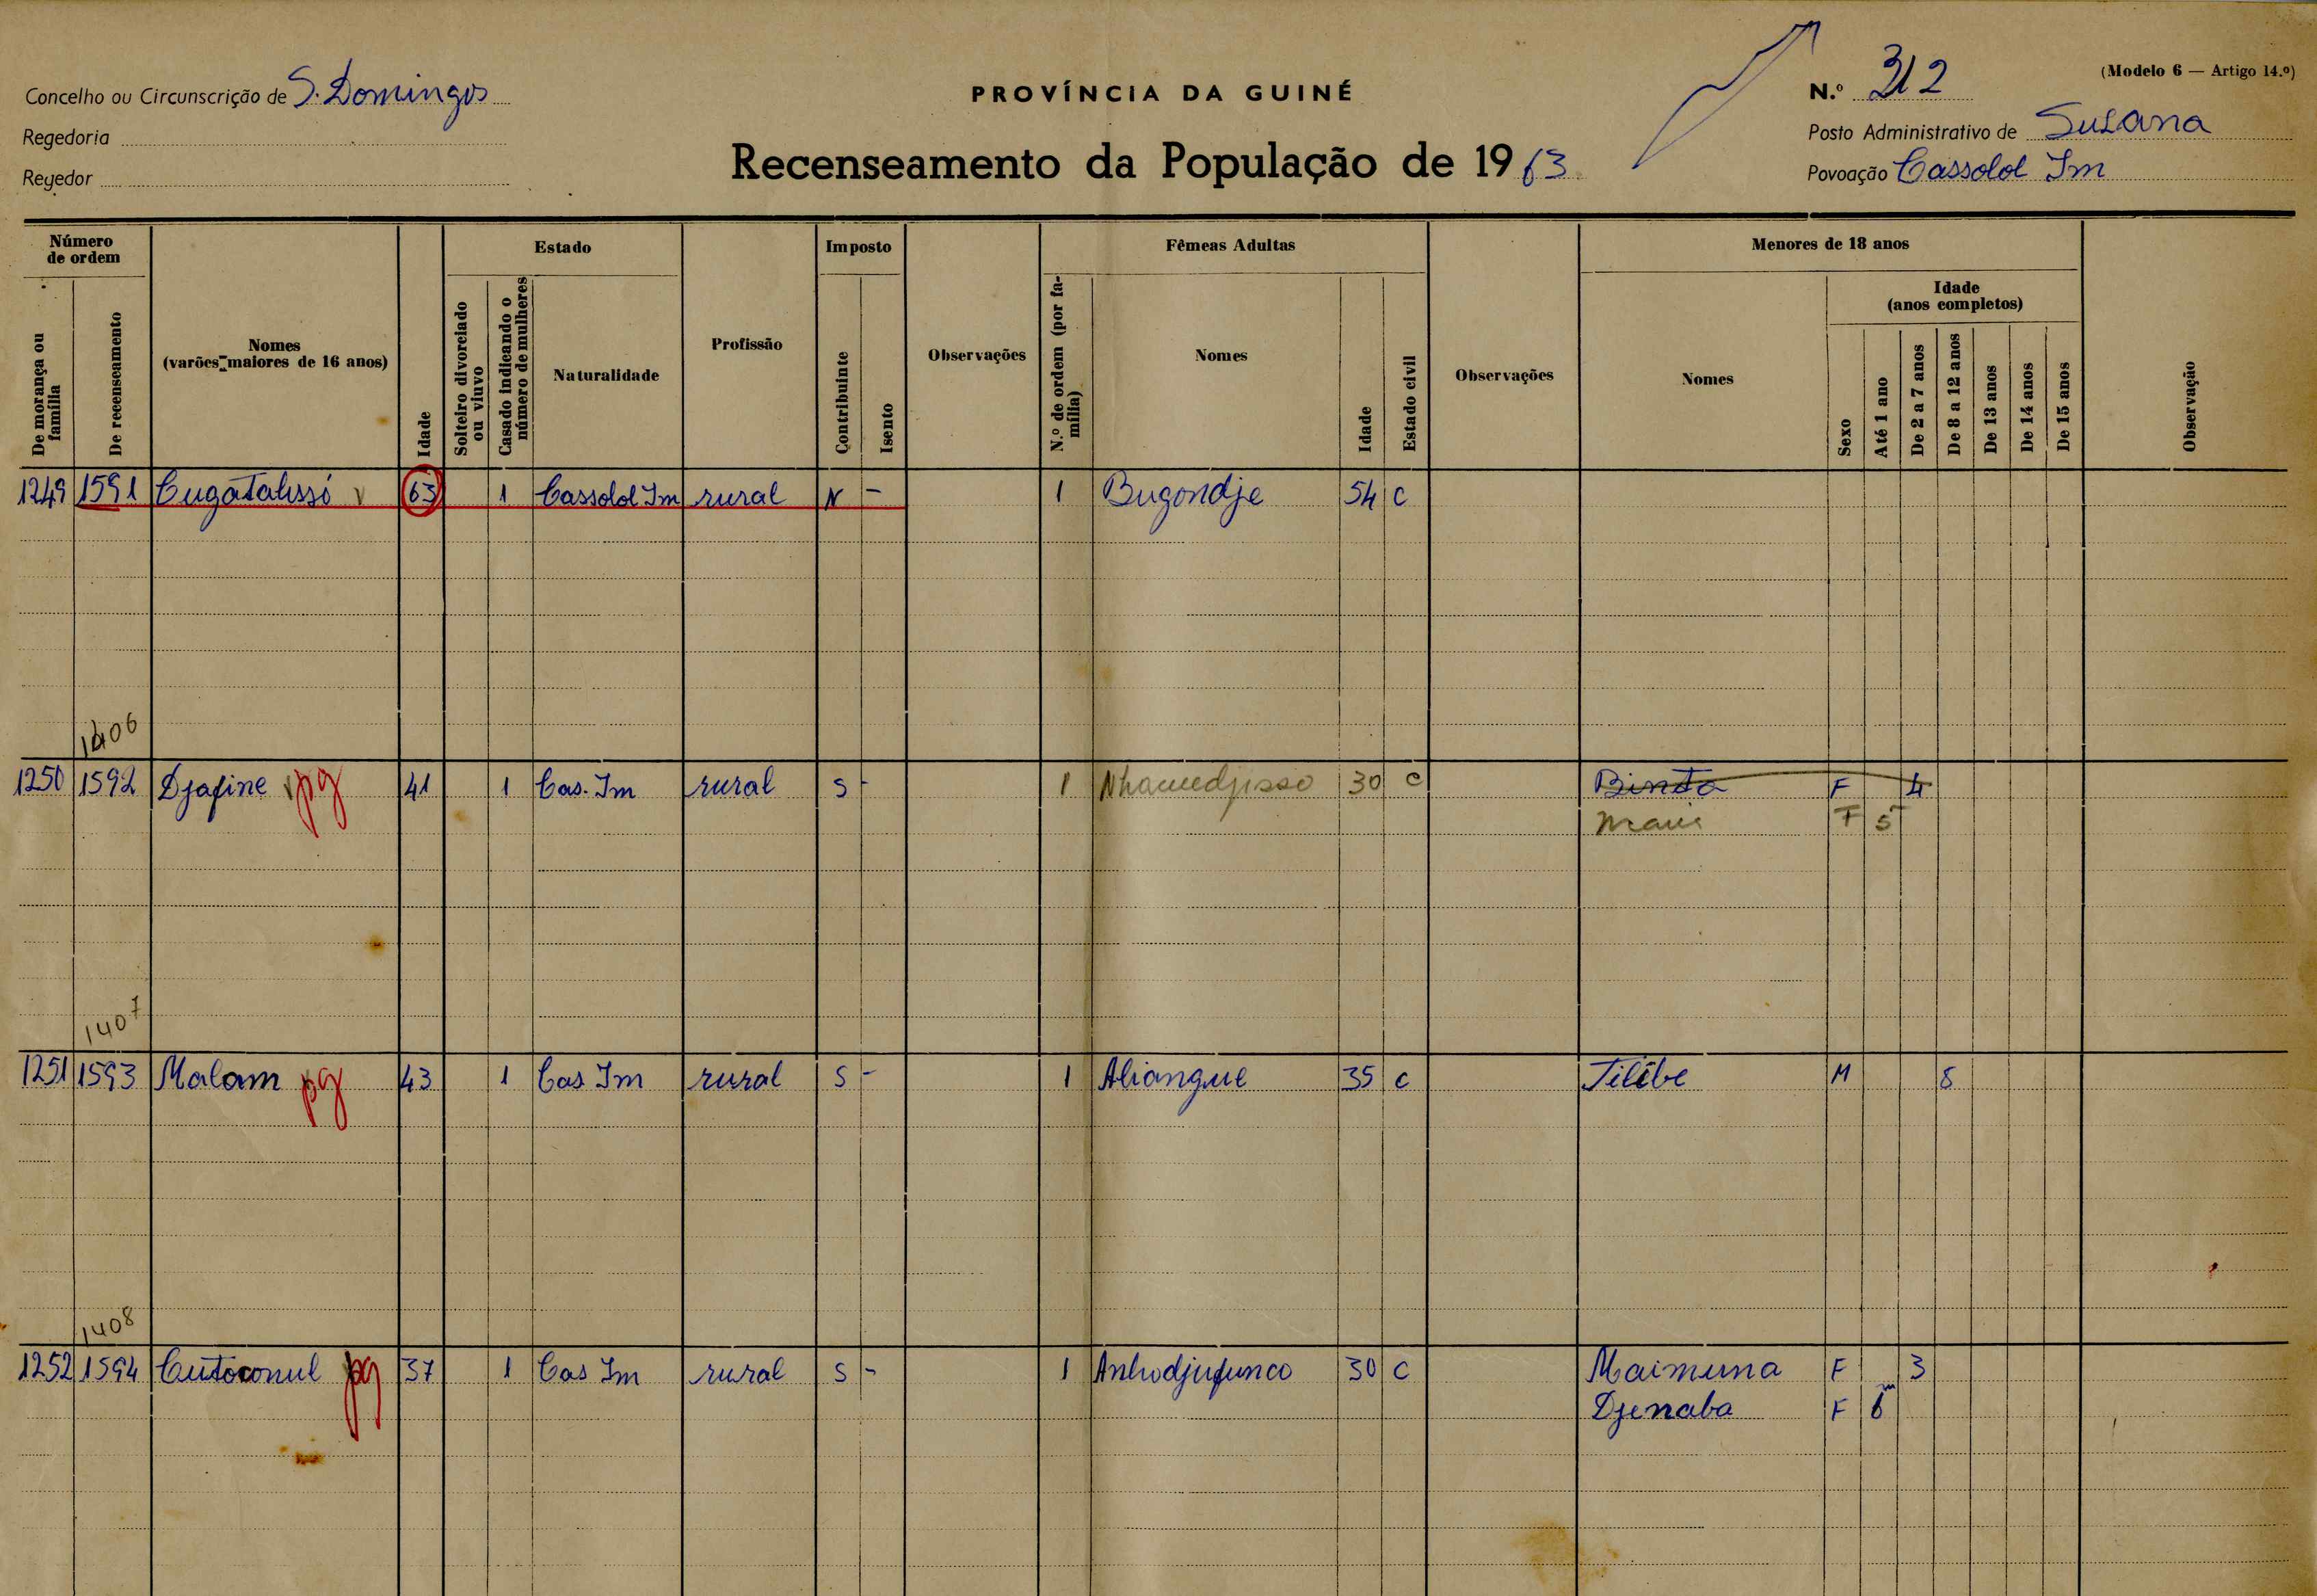 (Modelo 6 — Artigo 14.º)
Concelho ou Circunscrição de S. Domingos
PROVÍNCIA DA GUINÉ
N.º 312
Regedoria
Posto Administrativo de Susana
Regedor
Recenseamento da População de 1963
Povoação Cassolol Im
Número de ordem
Estado
Imposto
Fêmeas Adultas
Menores de 18 anos
De morança ou família
De recenseamento
Nomes (varões maiores de 16 anos)
Idade
Solteiro divorciado ou viuvo
Casado indicando o número de mulheres
Naturalidade
Profissão
Contribuinte
Isento
Observações
N.º de ordem (por família)
Nomes
Idade
Estado civil
Observações
Nomes
Sexo
Idade (anos completos)
Até 1 ano
De 2 a 7 anos
De 8 a 12 anos
De 13 anos
De 14 anos
De 15 anos
Observação
1249 1591 Cugatalissó v 63 1 Cassolol Im rural N - 1 Bugondje 54 C
1406
1250 1592 Djafine v pg 41 1 Cas. Im rural S - 1 30 C Binta F 4
F 5
1407
1251 1593 Malam pg 43 1 Cas Im rural S - 1 Aliangue 35 C Tilibe M 8
1408
1252 1594 Cutoconul pg 37 1 Cas Im rural S - 1 Anhodjufunco 30 C Maimuna F 3
Djenaba F 6m